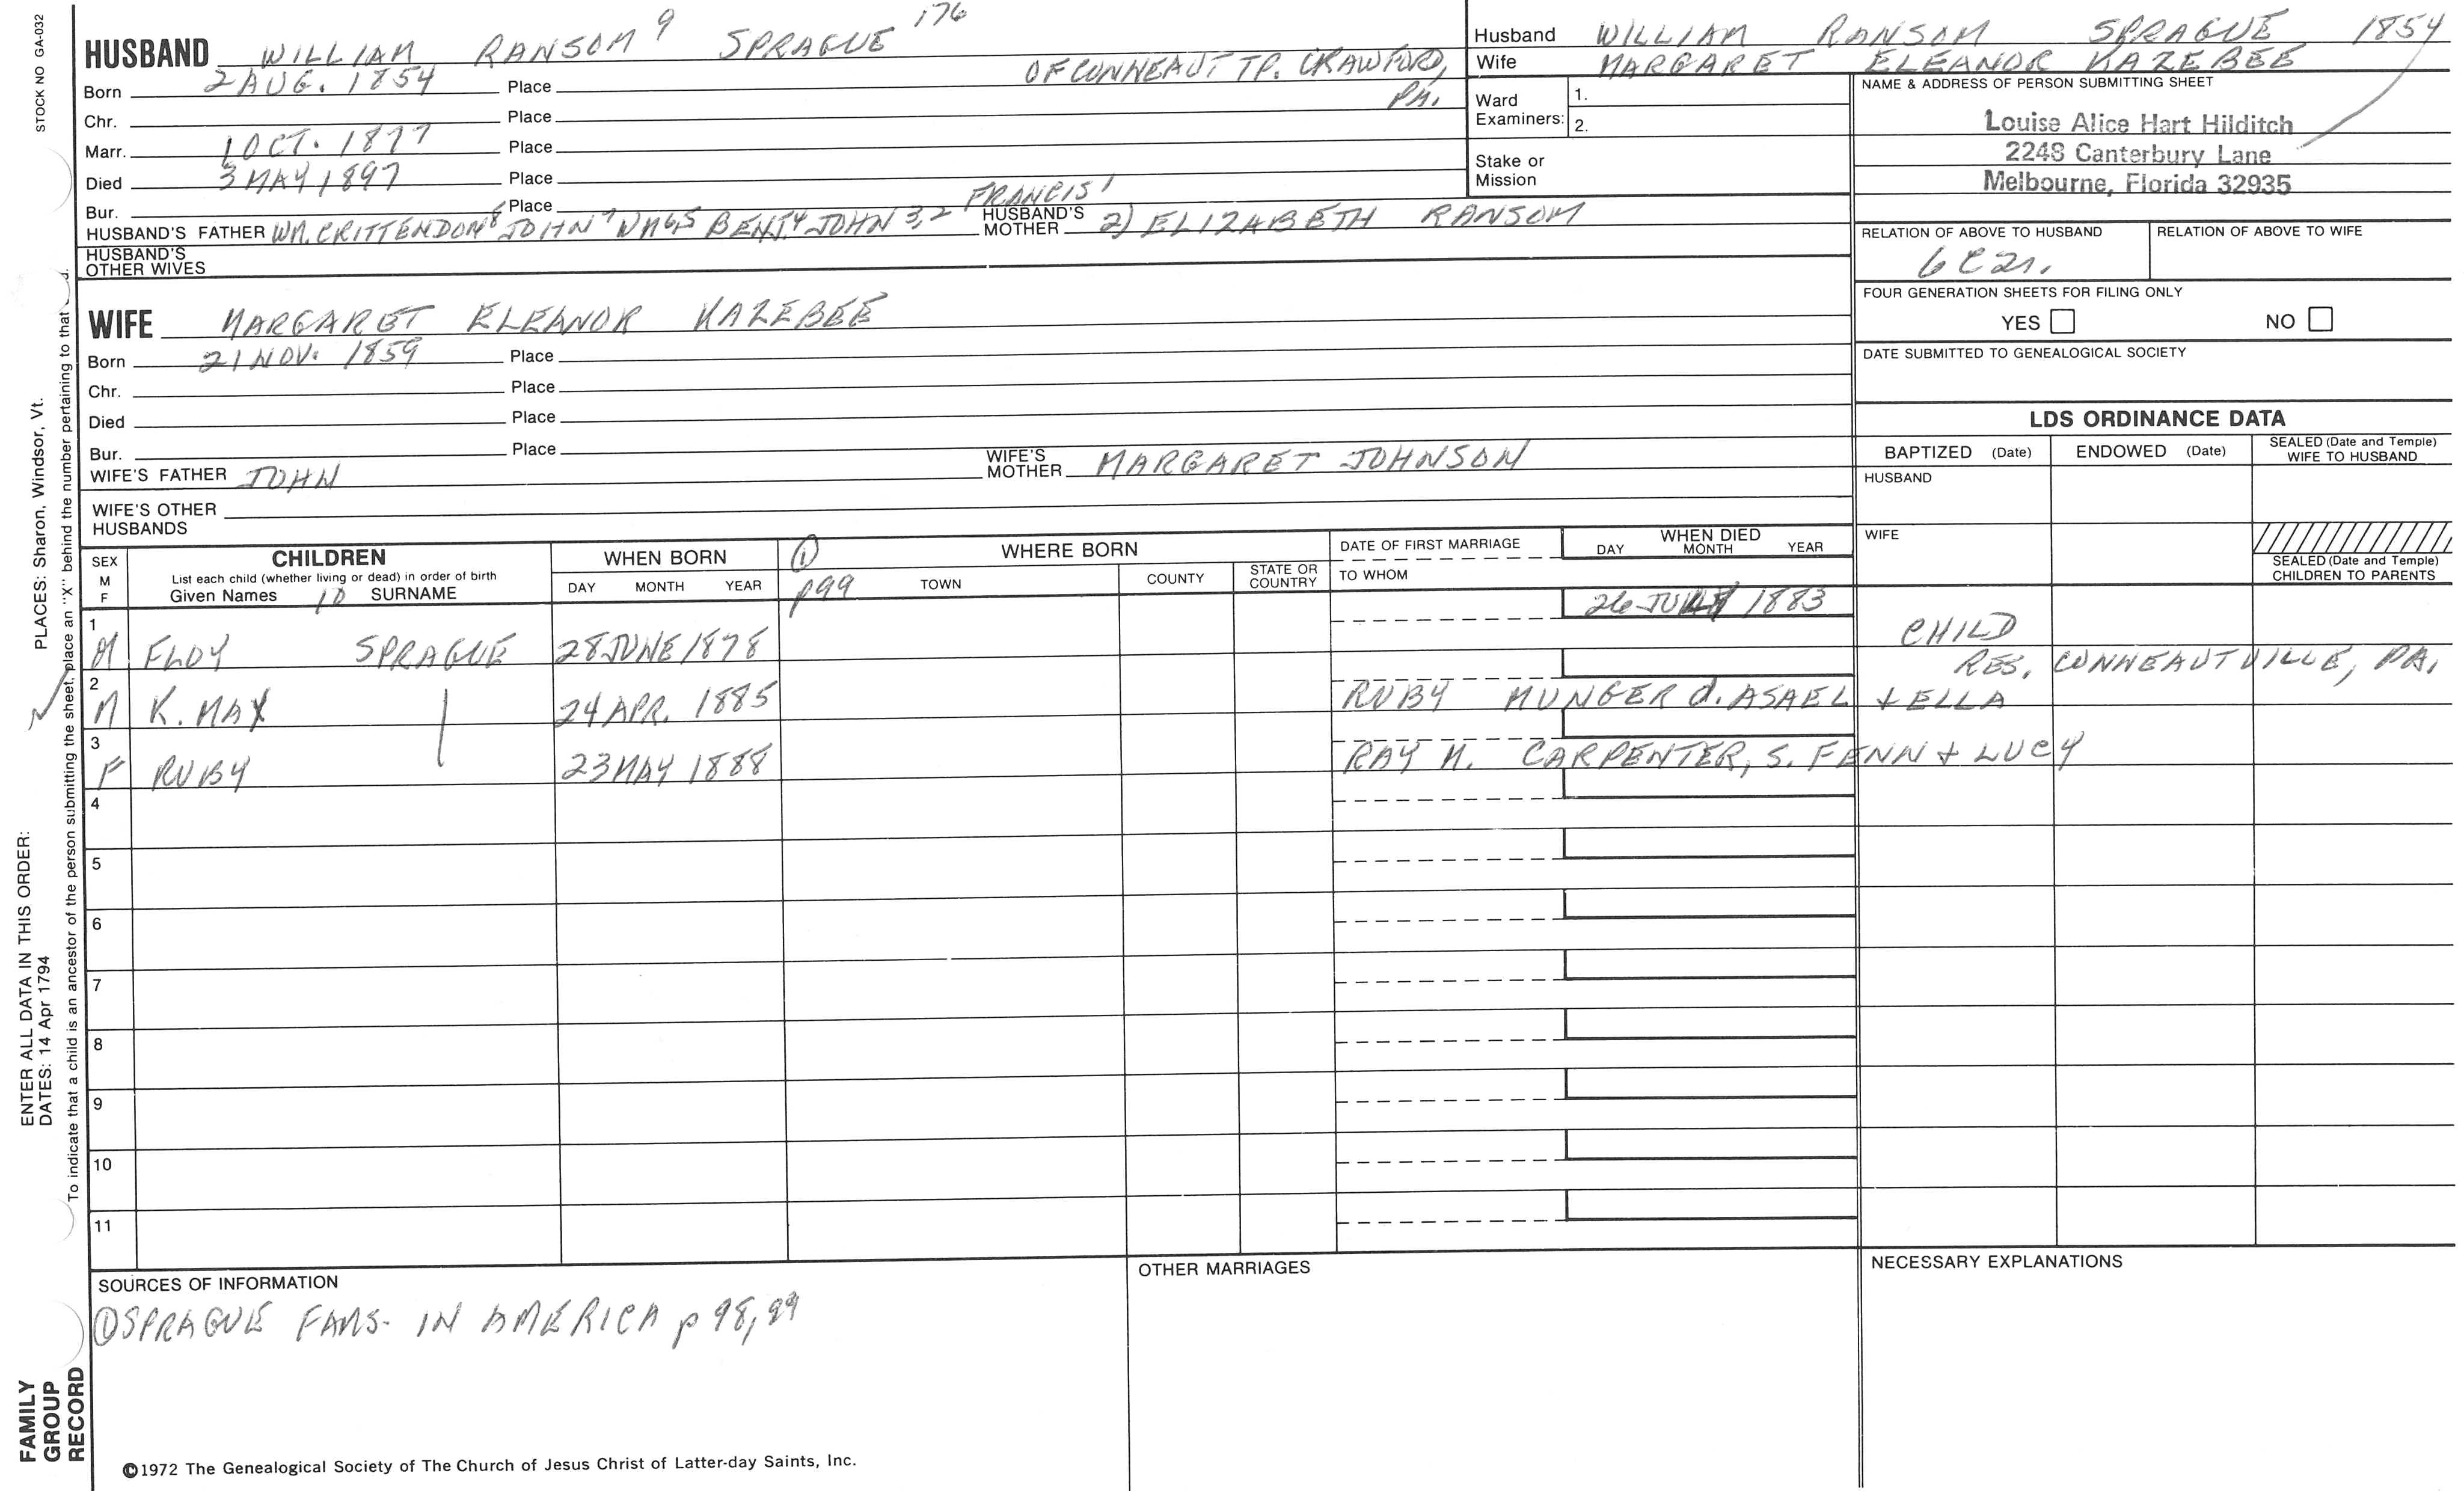 STOCK NO GA-032
HUSBAND WILLIAM RANSOM 9 SPRAGUE 176
Born 2 AUG. 1854 Place OF CONNEAUT TP. CRAWFORD,
PA.
Chr. Place
Marr. 1 OCT. 1877 Place
Died 3 MAY 1897 Place
Bur. Place
FRANCIS 1
HUSBAND'S FATHER WM. CRITTENDON 8 JOHN 7 WM 6,5 BENJ. 4 JOHN 3,2 HUSBAND'S MOTHER 2) ELIZABETH RANSOM
HUSBAND'S OTHER WIVES
WIFE MARGARET ELEANOR KAZEBEE
Born 21 NOV. 1859 Place
Chr. Place
Died Place
Bur. Place
WIFE'S FATHER JOHN WIFE'S MOTHER MARGARET JOHNSON
WIFE'S OTHER HUSBANDS
Husband WILLIAM RANSOM SPRAGUE 1854
Wife MARGARET ELEANOR KAZEBEE
Ward Examiners: 1.
2.
Stake or Mission
NAME & ADDRESS OF PERSON SUBMITTING SHEET
Louise Alice Hart Hilditch
2248 Canterbury Lane
Melbourne, Florida 32935
RELATION OF ABOVE TO HUSBAND RELATION OF ABOVE TO WIFE
6C2r.
FOUR GENERATION SHEETS FOR FILING ONLY
YES NO
DATE SUBMITTED TO GENEALOGICAL SOCIETY
LDS ORDINANCE DATA
BAPTIZED (Date) ENDOWED (Date) SEALED (Date and Temple) WIFE TO HUSBAND
HUSBAND
WIFE
SEALED (Date and Temple) CHILDREN TO PARENTS
SEX M F
CHILDREN
List each child (whether living or dead) in order of birth
Given Names 10 SURNAME
WHEN BORN
DAY MONTH YEAR
① WHERE BORN
p99 TOWN COUNTY STATE OR COUNTRY
DATE OF FIRST MARRIAGE
TO WHOM
WHEN DIED
DAY MONTH YEAR
1 M FLOY SPRAGUE 28 JUNE 1878 1883 CHILD
RES. CONNEAUTVILLE, PA.
2 M K. MAX 24 APR. 1885 RUBY MUNGER d. ASAEL + ELLA
3 F RUBY 23 MAY 1888 RAY M. CARPENTER, S. FENN + LUCY
4
5
6
7
8
9
10
11
SOURCES OF INFORMATION
① SPRAGUE FAMS. IN AMERICA p 98, 99
OTHER MARRIAGES
NECESSARY EXPLANATIONS
©1972 The Genealogical Society of The Church of Jesus Christ of Latter-day Saints, Inc.
ENTER ALL DATA IN THIS ORDER:
DATES: 14 Apr 1794
PLACES: Sharon, Windsor, Vt.
To indicate that a child is an ancestor of the person submitting the sheet, place an "X" behind the number pertaining to that
FAMILY
GROUP
RECORD